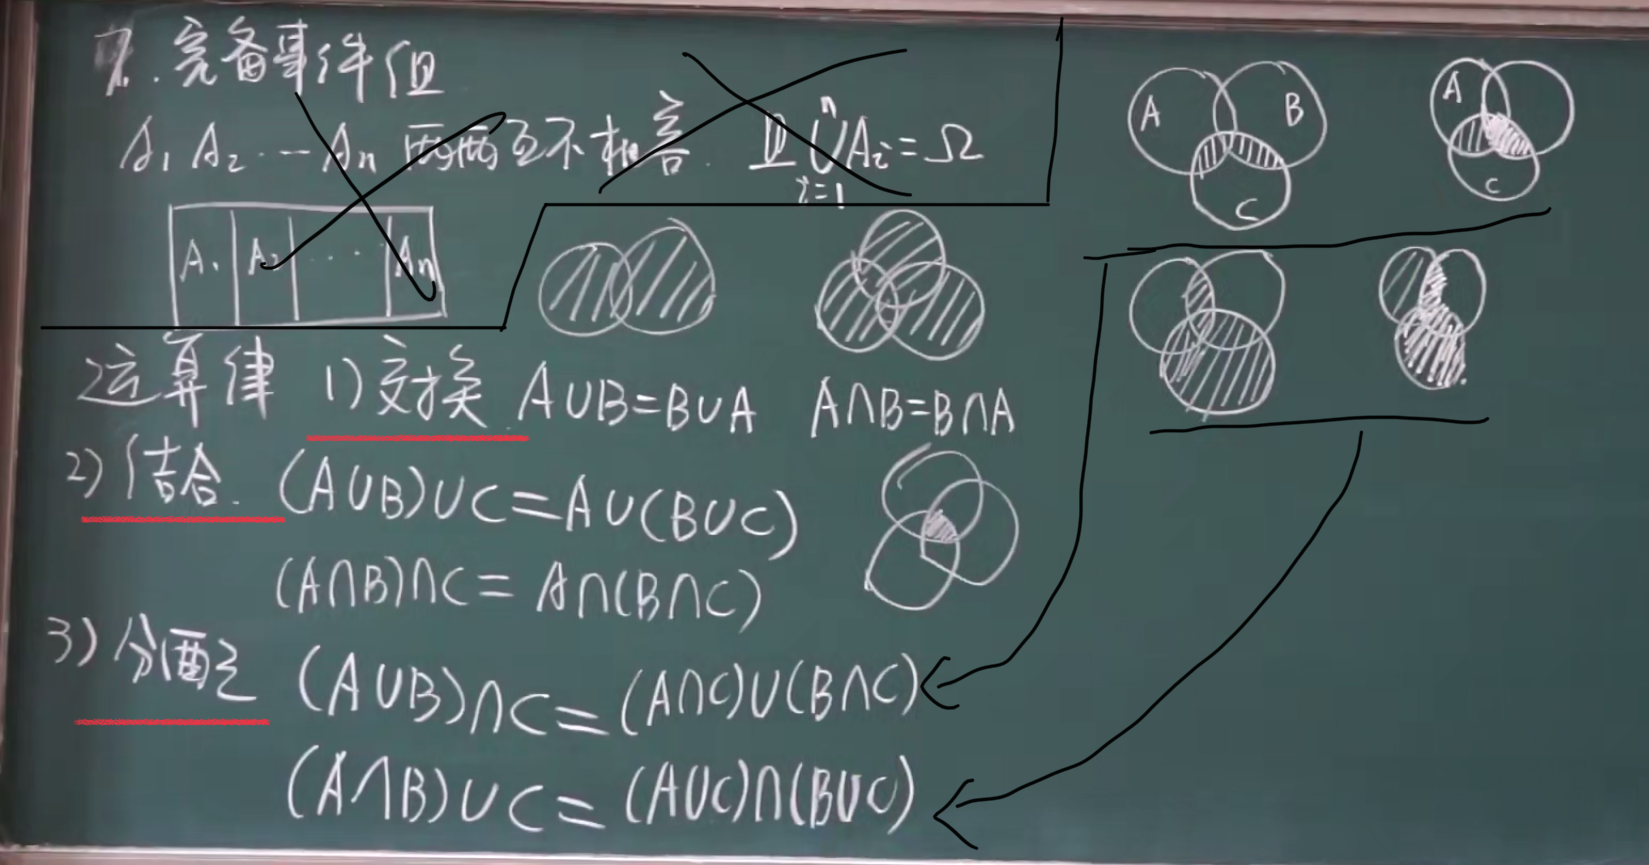 7. 完备事件组
A₁ A₂ ⋯ Aₙ 两两互不相容. 且 ⋃ᵢ₌₁ⁿ Aᵢ = Ω
A₁ A₂ ⋯ Aₙ
A B C
A C
运算律 1) 交换 A∪B=B∪A A∩B=B∩A
2) 结合. (A∪B)∪C=A∪(B∪C)
(A∩B)∩C=A∩(B∩C)
3) 分配 (A∪B)∩C=(A∩C)∪(B∩C)
(A∩B)∪C=(A∪C)∩(B∪C)